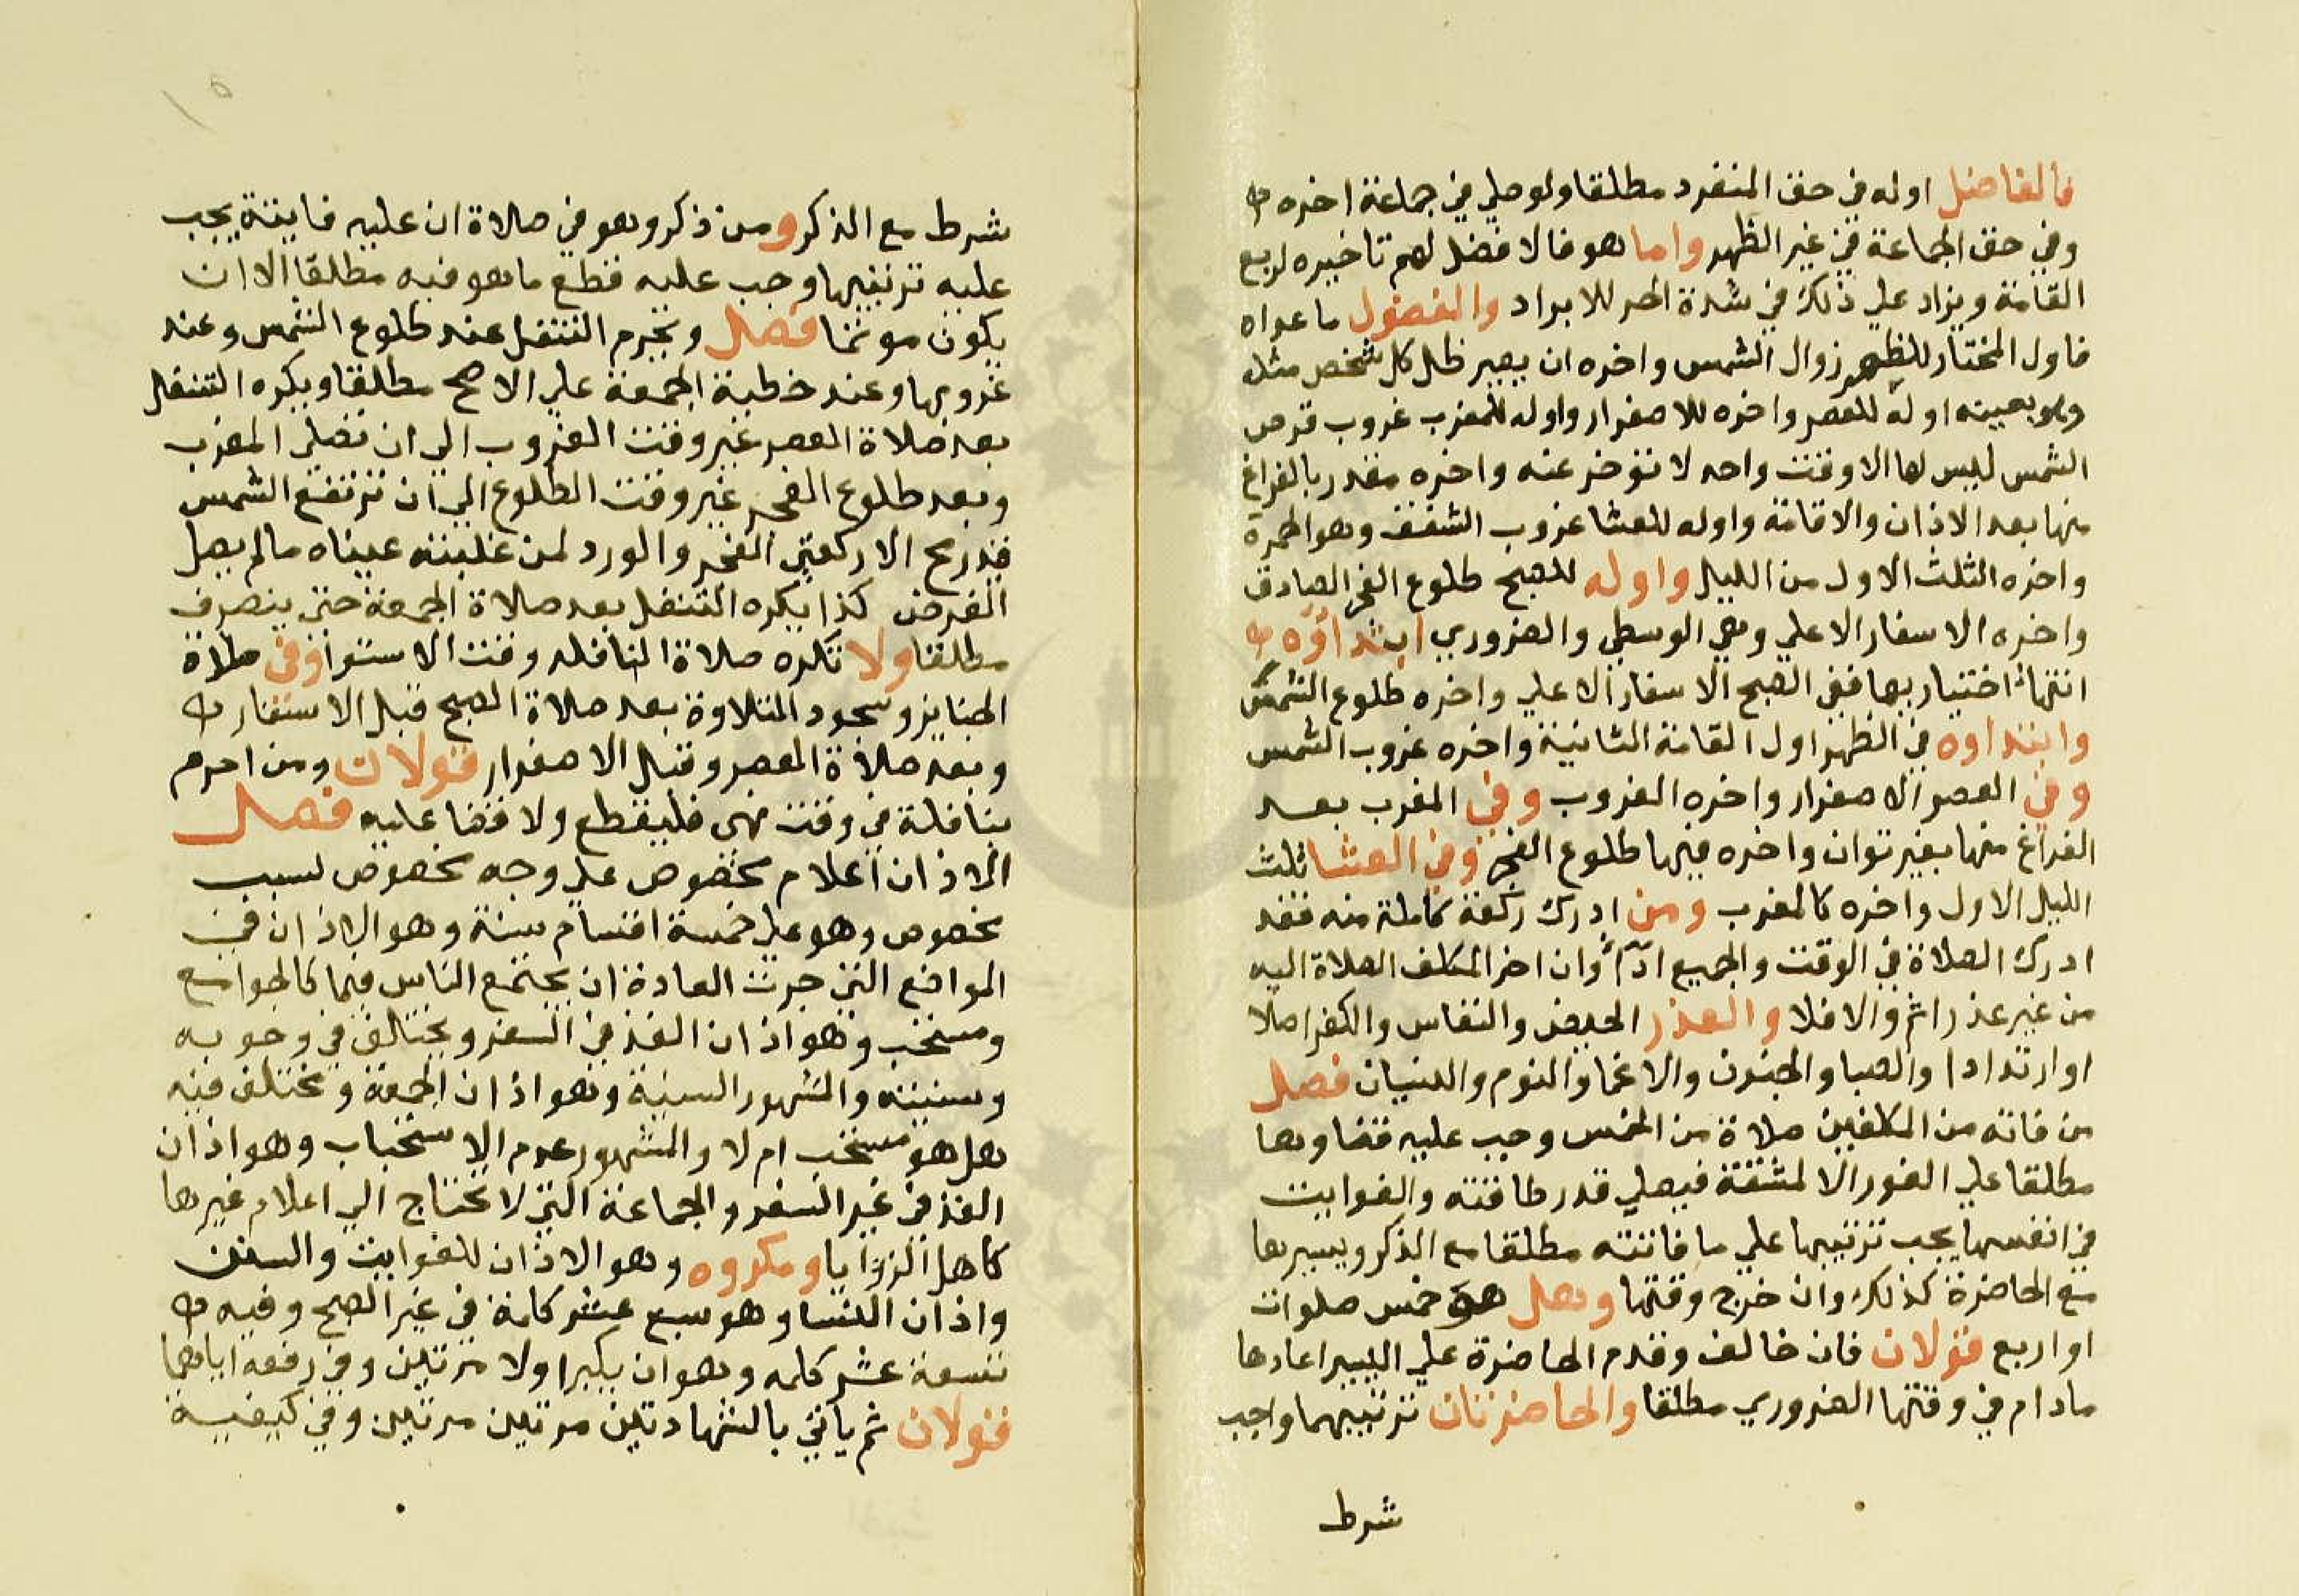 فالفاضل اوله في حق المنفرد مطلقا ولو صلي في جماعة اخره
وفي حق الجماعة في غير الظهر واما هو فالافضل لهم تاخيره لربع
القامة ويزاد علي ذلك في شدة الحر للابراد والمفضول ما عداه
فاول المختار للظهر زوال الشمس واخره ان يصير ظل كل شخص مثله
وهو بعينه اوله للعصر واخره للاصفرار واوله للمغرب غروب قرص
الشمس ليس لها الا وقت واحد لا تؤخر عنه واخره مقدر بالفراغ
منها بعد الاذان والاقامة واوله للعشا غروب الشفق وهو الحمرة
واخره الثلث الاول من الليل واوله للصبح طلوع الفجر الصادق
واخره الاسفار الاعلي وهي الوسطي والضروري ابتداؤه
انتهاء اختياريها ففي الصبح الاسفار الاعلي واخره طلوع الشمس
وابتداوه في الظهر اول القامة الثانية واخره غروب الشمس
وفي العصر الاصفرار واخره الغروب وفي المغرب بعد
الفراغ منها بغير توان واخره فيها طلوع الفجر وفي العشا ثلث
الليل الاول واخره كالمغرب ومن ادرك ركعة كاملة منه فقد
ادرك الصلاة في الوقت والجميع اداء وان اخر المكلف الصلاة اليه
من غير عذر اثم والا فلا والعذر الحيض والنفاس والكفر اصلا
او ارتدادا والصبا والجنون والاغما والنوم والنسيان فصل
من فاته من المكلفين صلاة من الخمس وجب عليه قضاوها
مطلقا علي الفور الا لمشقة فيصلي قدر طاقته والفوايت
في انفسها يجب ترتيبها علي ما فاتته مطلقا مع الذكر ويسيرها
مع الحاضرة كذلك وان خرج وقتها وهل هو خمس صلوات
او اربع قولان فان خالف وقدم الحاضرة علي اليسير اعادها
مادام في وقتها الضروري مطلقا والحاضرتان ترتيبهما واجب
شرط
شرط مع الذكر ومن ذكر وهو في صلاة ان عليه فايتة يجب
عليه ترتيبها وجب عليه قطع ما هو فيه مطلقا الا ان
يكون موتما فصل ويحرم التنفل عند طلوع الشمس وعند
غروبها وعند خطبة الجمعة علي الاصح مطلقا ويكره التنفل
بعد صلاة العصر غير وقت الغروب الي ان تصلي المغرب
وبعد طلوع الفجر غير وقت الطلوع الي ان ترتفع الشمس
قيد رمح الا ركعتي الفجر والورد لمن غلبته عيناه مالم يصل
الفرض كذا يكره التنفل بعد صلاة الجمعة حتي ينصرف
مطلقا ولا تكره صلاة النافله وقت الاستوا وفي صلاة
الجنايز وسجود التلاوة بعد صلاة الصبح قبل الاسفار
وبعد صلاة العصر وقبل الاصفرار قولان ومن احرم
بنافلة في وقت نهي فليقطع ولا قضا عليه فصل
الاذان اعلام مخصوص علي وجه مخصوص لسبب
مخصوص وهو علي خمسة اقسام سنة وهو الاذان في
المواضع التي جرت العادة ان يجتمع الناس فيها كالجوامع
ومستحب وهو اذان الفذ في السفر ويختلف في وجوبه
وسنيته والمشهور السنية وهو اذان الجمعة ومختلف فيه
هل هو مستحب ام لا والمشهور عدم الاستحباب وهو اذان
الفذ في غير السفر والجماعة التي لا تحتاج الي اعلام غيرها
كاهل الزوايا ومكروه وهو الاذان للفوايت والسنن
واذان النسا وهو سبع عشر كلمة في غير الصبح وفيه
تسعة عشر كلمه وهو ان يكبر اولا مرتين وفي رفعه اياهما
قولان ثم ياتي بالشهادتين مرتين مرتين وفي كيفية